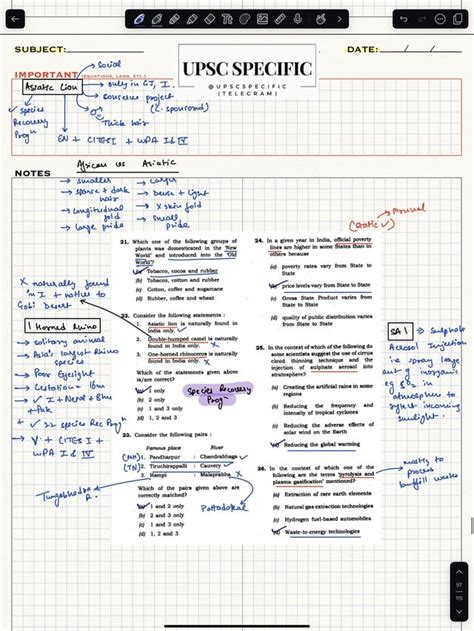 SUBJECT:
DATE: / /
UPSC SPECIFIC
@UPSCSPECIFIC
(TELEGRAM)
IMPORTANT (EQUATIONS, LAWS, ETC.)
Asiatic Lion
→ Social
→ only in GJ, I.
→ conserve project
(C. sponsored)
→ Thick hair
✓ species
Recovery
Prog
EN + CITES I + WPA I & IV
NOTES
African vs Asiatic
→ smaller → larger
→ sparse + dark hair → dense + light
→ longitudinal fold → X skin fold
→ large pride → small pride
21. Which one of the following groups of
plants was domesticated in the 'New
World' and introduced into the 'Old
World'?
(a) Tobacco, cocoa and rubber
(b) Tobacco, cotton and rubber
(c) Cotton, coffee and sugarcane
(d) Rubber, coffee and wheat
X naturally found
in I + native to
Gobi Desert
22. Consider the following statements :
1. Asiatic lion is naturally found in
India only. ✓
2. Double-humped camel is naturally
found in India only. X
3. One-horned rhinoceros is naturally
found in India only. X
Which of the statements given above
is/are correct?
(a) 1 only
(b) 2 only
(c) 1 and 3 only
(d) 1, 2 and 3
Species Recovery
Prog
1 Horned Rhino
→ solitary animal
→ Asia's largest Rhino
species
→ Poor Eyesight
→ Gestation = 16m
→ ✓ I + Nepal + Bhu
+ Pak
+ ✓ 22 species Rec Prog
→ V + CITES I +
WPA I & IV
23. Consider the following pairs :
Famous place River
(MH) 1. Pandharpur : Chandrabhaga ✓
(TN) 2. Tiruchirappalli : Cauvery ✓
3. Hampi : Malaprabha X
Which of the pairs given above are
correctly matched?
(a) 1 and 2 only
(b) 2 and 3 only
(c) 1 and 3 only
(d) 1, 2 and 3
Tungabhadra
R.
Pattadakal
(State ✓)
24. In a given year in India, official poverty
lines are higher in some States than in
others because
(a) poverty rates vary from State to
State
(b) price levels vary from State to State
(c) Gross State Product varies from
State to State
(d) quality of public distribution varies
from State to State
25. In the context of which of the following
do some scientists suggest the use of cirrus
cloud thinning technique and the
injection of sulphate aerosol into
stratosphere?
(a) Creating the artificial rains in some
regions
(b) Reducing the frequency and
intensity of tropical cyclones
(c) Reducing the adverse effects of
solar wind on the Earth
(d) Reducing the global warming
SAI → Sulphate
Aerosol Injection
i.e spray large
amt of inorganic
eg SO2 in
atmosphere to
reflect incoming
sunlight.
26. In the context of which one of the
following are the terms 'pyrolysis and
plasma gasification' mentioned?
(a) Extraction of rare earth elements
(b) Natural gas extraction technologies
(c) Hydrogen fuel-based automobiles
(d) Waste-to-energy technologies
mostly to
process
landfill waste
97
115